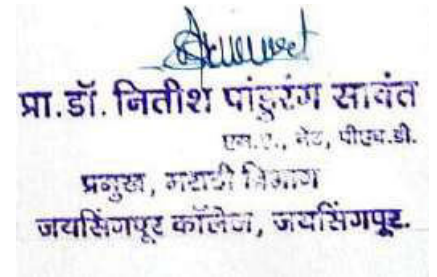 प्रा.डॉ. नितीश पांडुरंग सावंत
एम.ए., नेट, पीएच.डी.
प्रमुख, मराठी विभाग
जयसिंगपूर कॉलेज, जयसिंगपूर.